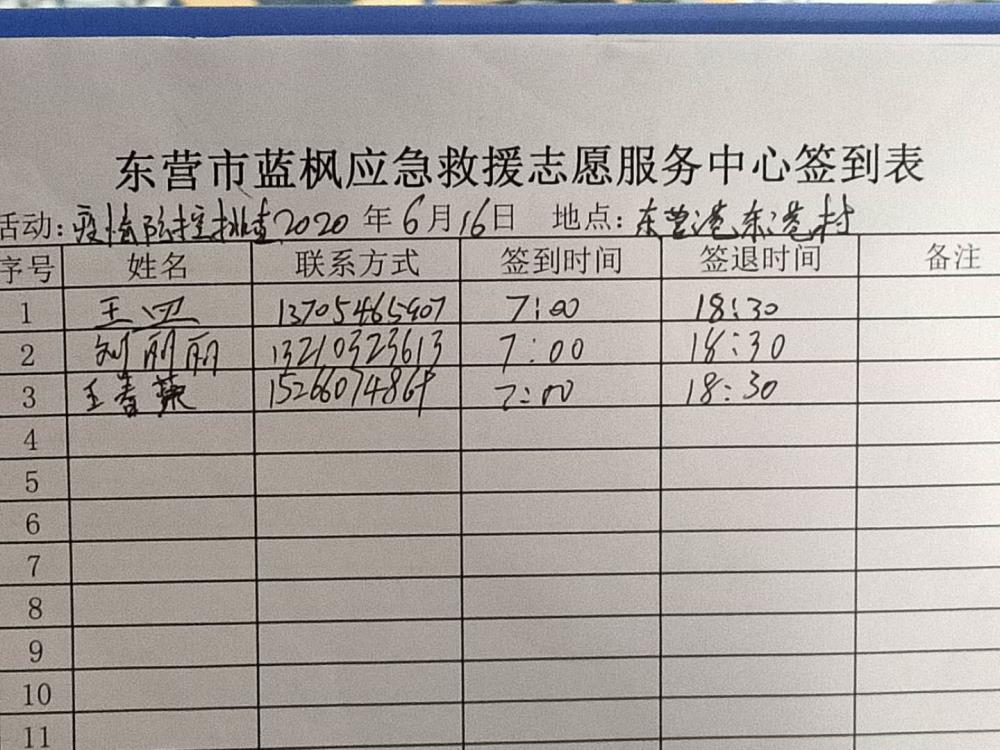 东营市蓝枫应急救援志愿服务中心签到表
活动:疫情防控排查2020年6月16日 地点:东营港东港村
序号 姓名 联系方式 签到时间 签退时间 备注
1 王四 13705465907 7:00 18:30
2 刘丽丽 13210323613 7:00 18:30
3 王春 15266074869 7:00 18:30
4
5
6
7
8
9
10
11